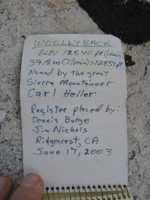 WOOLLYBACK
Named by the great
Sierra Mountaineer
Carl Heller
Register placed by:
Dennis Burge
Jim Nichols
Ridgecrest, CA
June 17, 2003